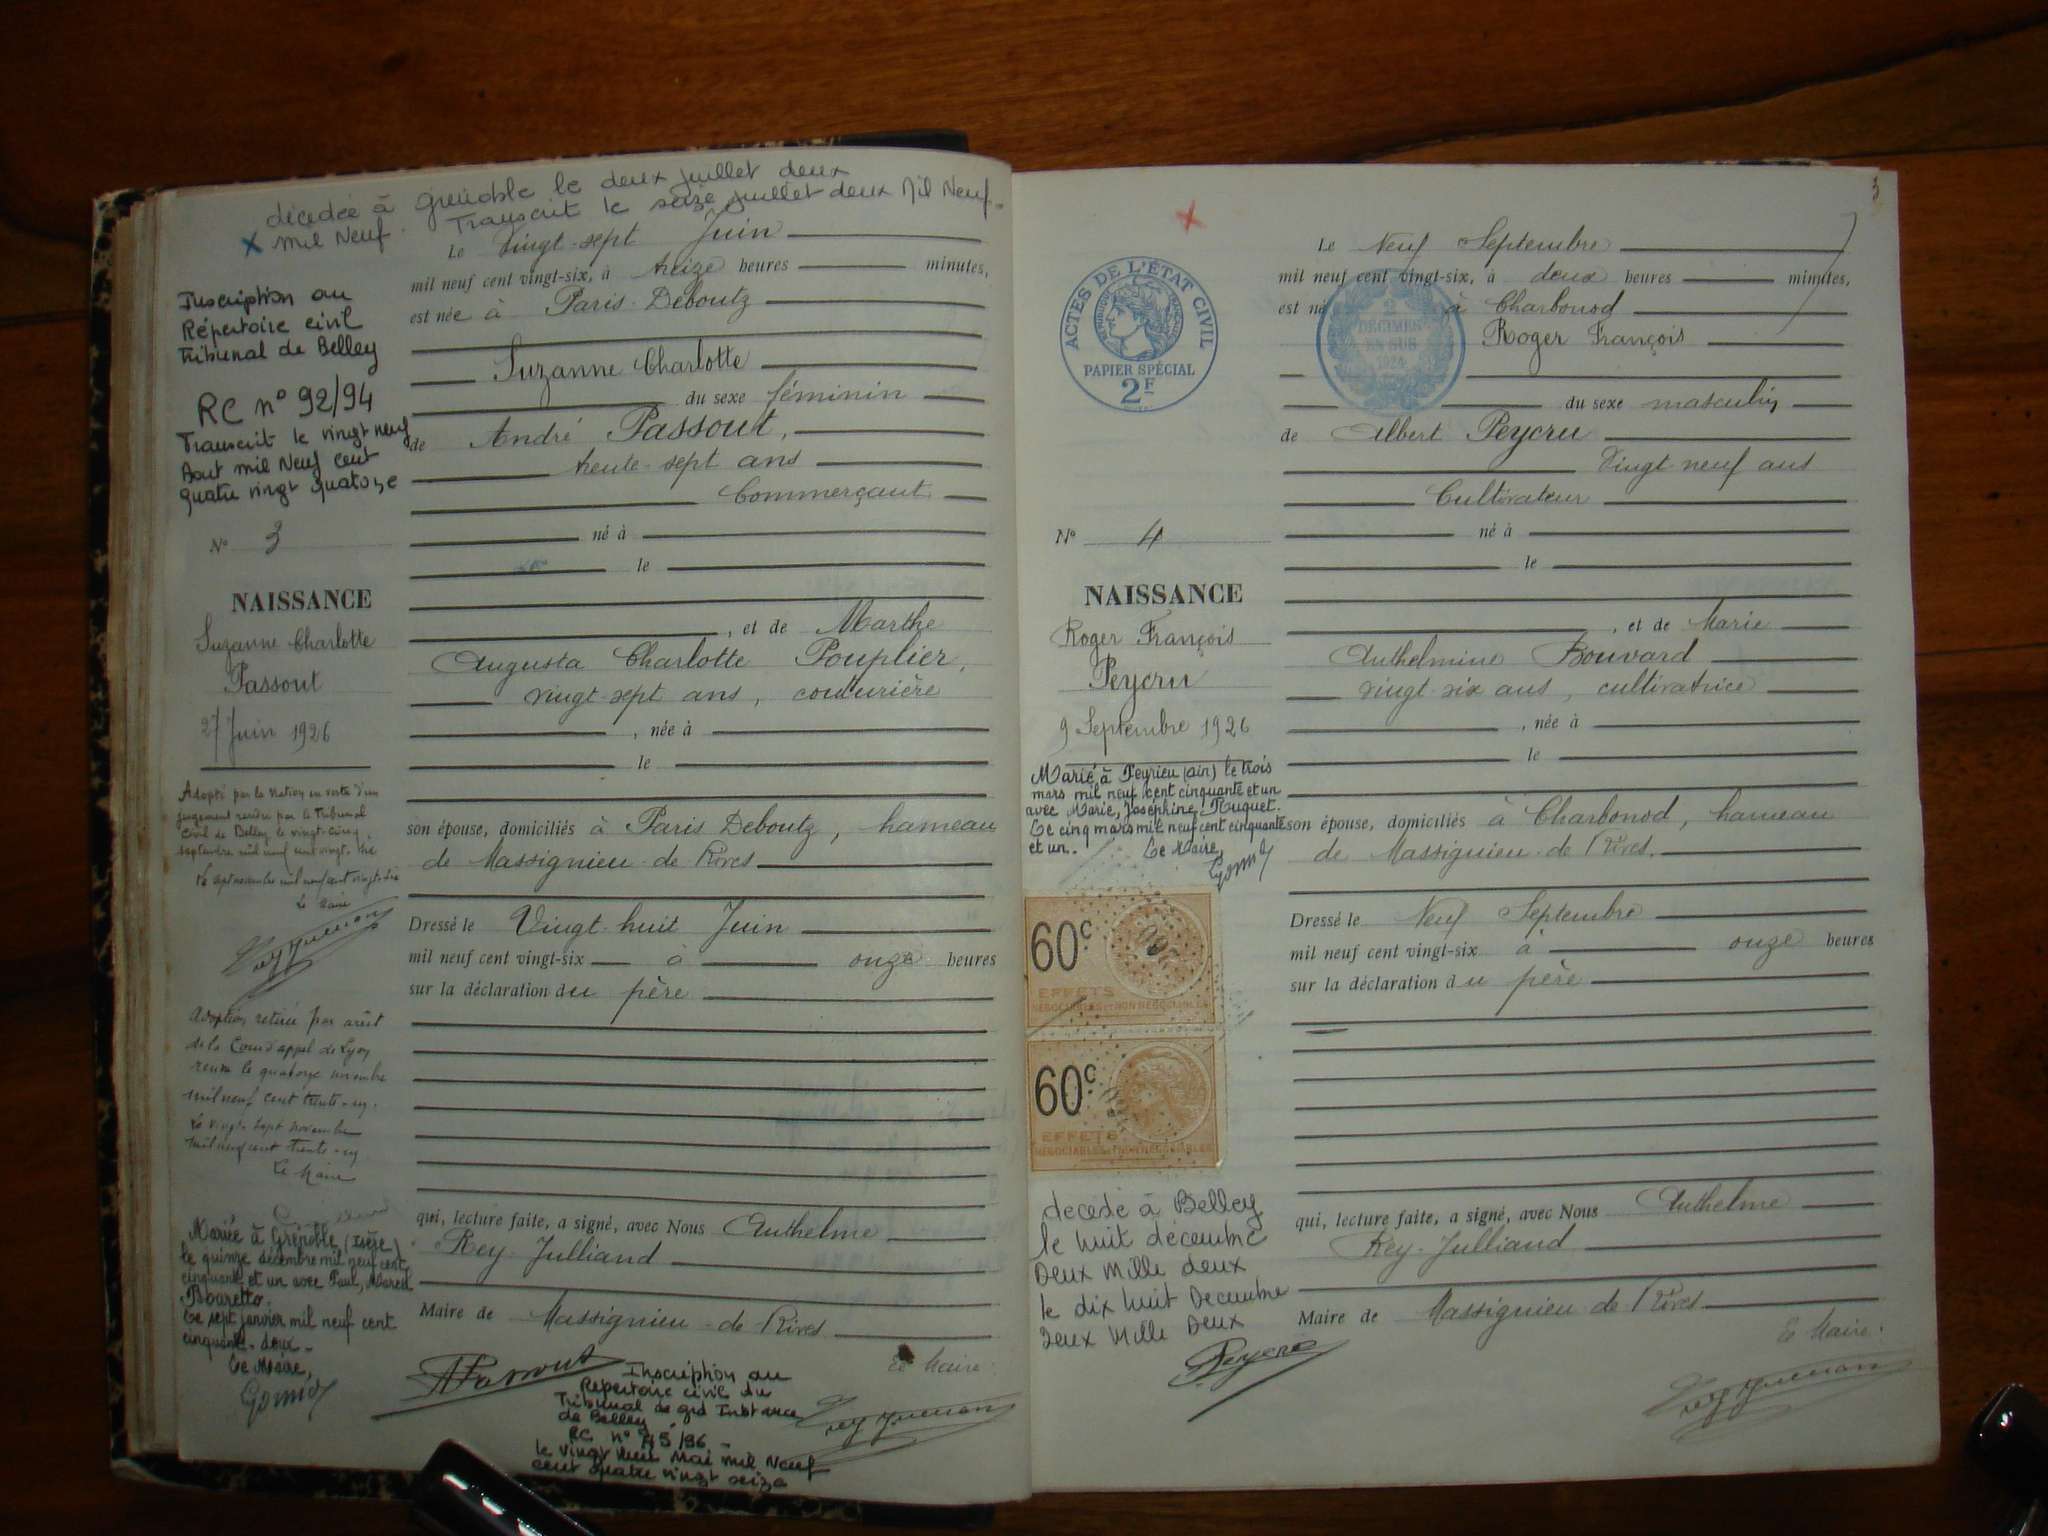 décédée à Grenoble le deux juillet deux
mil Neuf. Transcrit le seize juillet deux Mil Neuf.
Inscription au
Répertoire civil
Tribunal de Belley
RC n° 92/94
Transcrit le vingt neuf
Aout mil Neuf cent
quatre vingt quatorze
N° 3
NAISSANCE
Suzanne Charlotte
Passout
27 Juin 1926
Adopté par la Nation en vertu d'un
jugement rendu par le Tribunal
Civil de Belley le vingt-cinq
septembre mil neuf cent vingt-
Le Maire
Adoption retirée par arrêt
de la Cour d'appel de Lyon
rendu le quatorze novembre
mil neuf cent trente-un.
Le vingt sept novembre
mil neuf cent trente-un
Le Maire
Mariée à Grenoble (Isère)
le quinze décembre mil neuf cent
cinquante et un avec Paul, Marcel
Le sept janvier mil neuf cent
cinquante-deux.
Le Maire,
Le Vingt-sept Juin
mil neuf cent vingt-six, à treize heures minutes,
est née à Paris-Deboutz
Suzanne Charlotte
du sexe féminin
de André Passout,
trente-sept ans
Commerçant
né à
le
, et de Marthe
Augusta Charlotte Pouplier,
vingt-sept ans, couturière
, née à
le
son épouse, domiciliés à Paris Deboutz, hameau
de Massignieu-de-Rives
Dressé le Vingt-huit Juin
mil neuf cent vingt-six à onze heures
sur la déclaration du père
qui, lecture faite, a signé, avec Nous Anthelme
Rey-Julliand
Maire de Massignieu-de-Rives
APassout
Le Maire:
Inscription au
Répertoire civil du
Tribunal de grd Instance
de Belley
RC n° 45/96
le vingt huit Mai mil Neuf
cent quatre vingt seize
3
ACTES DE L'ÉTAT CIVIL
PAPIER SPÉCIAL
2F
N° 4
NAISSANCE
Roger François
Peycru
9 Septembre 1926
Marié à Peyrieu (Ain) le trois
mars mil neuf cent cinquante et un
avec Marie, Joséphine, Huguet.
Le cinq mars mil neuf cent cinquante
et un. Le Maire,
60c
EFFETS
NÉGOCIABLES ET NON NÉGOCIABLES
60c
EFFETS
NÉGOCIABLES ET NON NÉGOCIABLES
décédé à Belley
le huit décembre
Deux Mille deux
le dix huit Decembre
Deux Mille Deux
Le Neuf Septembre
mil neuf cent vingt-six, à deux heures minutes,
est né à Charbonod
2
DÉCIMES
EN SUS
1924
Roger François
du sexe masculin
de Albert Peycru
Vingt-neuf ans
Cultivateur
né à
le
, et de Marie
Anthelmine Bouvard
vingt-six ans, cultivatrice
, née à
le
son épouse, domiciliés à Charbonod, hameau
de Massignieu-de-Rives.
Dressé le Neuf Septembre
mil neuf cent vingt-six à onze heures
sur la déclaration du père
qui, lecture faite, a signé, avec Nous Anthelme
Rey-Julliand
Maire de Massignieu-de-Rives
Le Maire: